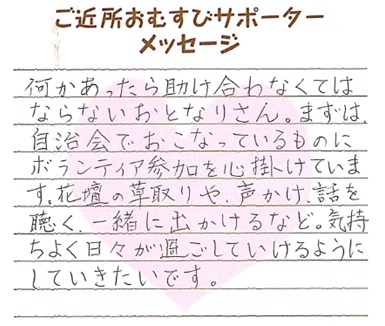 ご近所おむすびサポーター
メッセージ
何かあったら助け合わなくては
ならないおとなりさん。まずは、
自治会でおこなっているものに
ボランティア参加を心掛けていま
す。花壇の草取りや、声かけ、話を
聴く、一緒に出かけるなど。気持
ちよく日々が過ごしていけるように
していきたいです。